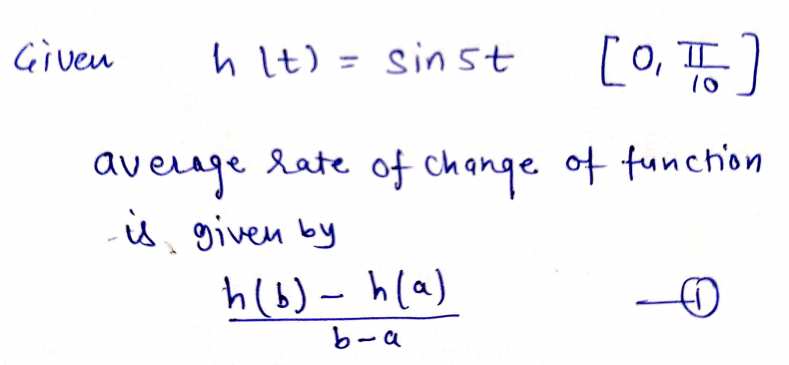 Given h(t) = sin 5t [0, π/10]
average rate of change of function
is given by
h(b) - h(a)
b-a
—①